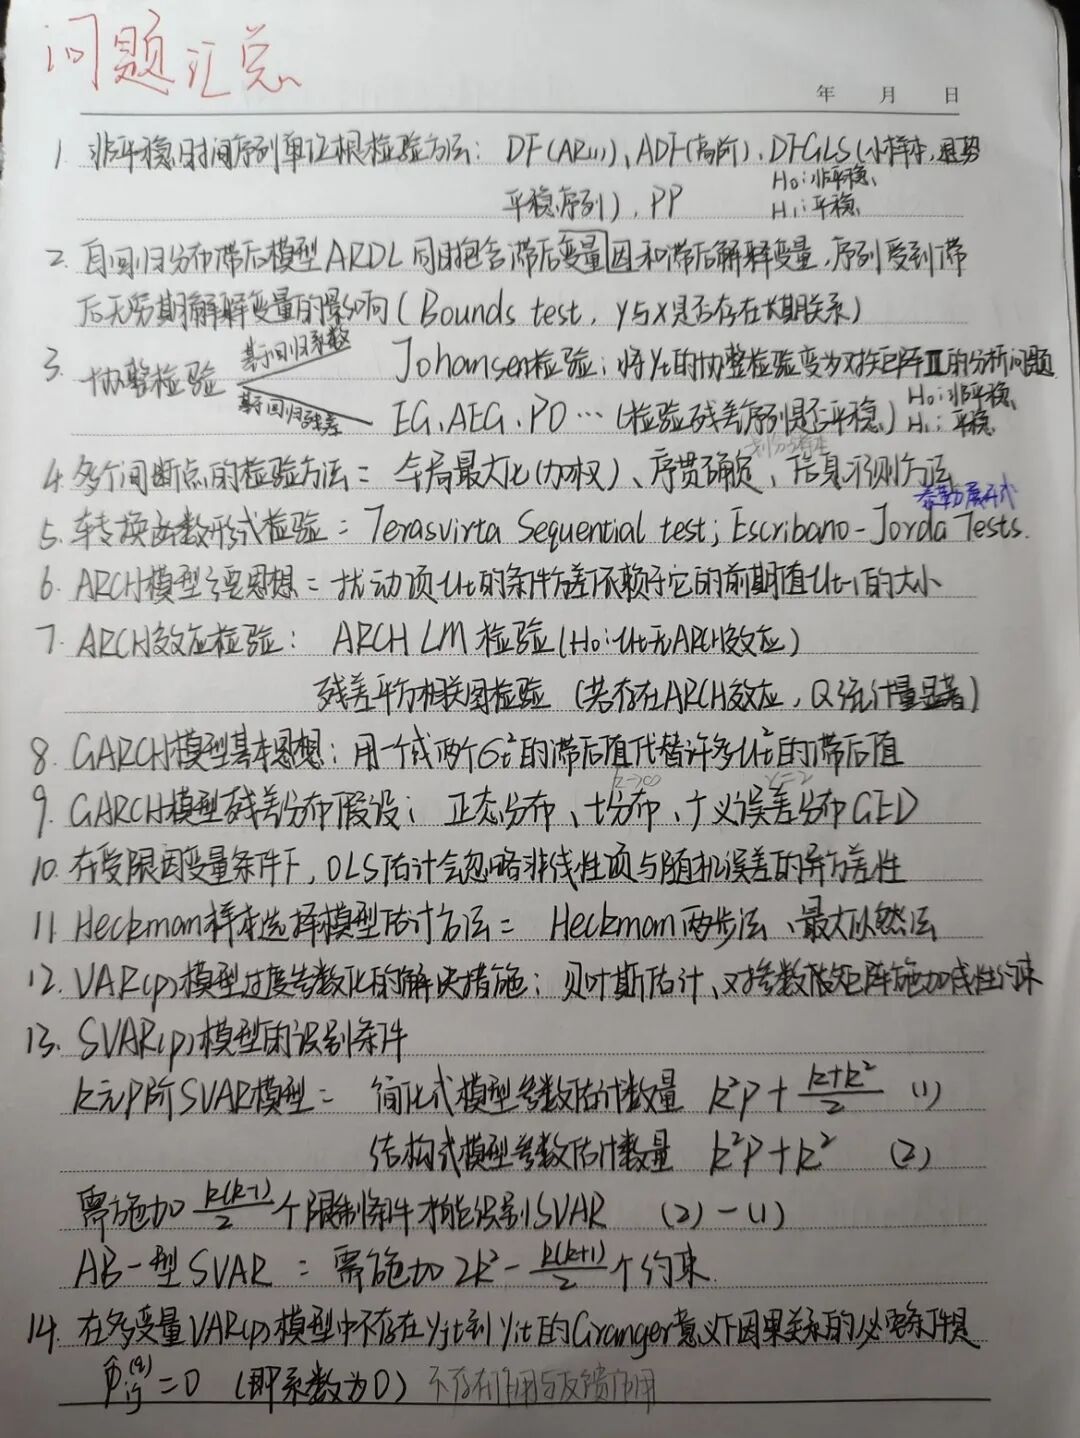 问题汇总
年 月 日
1. 非平稳时间序列单位根检验方法: DF(AR(1))、ADF(高阶)、DFGLS(小样本,趋势
H0:非平稳
平稳序列)、PP H1:平稳
2. 自回归分布滞后模型ARDL同时包含滞后变量因和滞后解释变量,序列受到滞
后无穷期解释变量的影响(Bounds test, Y与X是否存在长期关系)
3. 协整检验 基于回归系数 Johansen检验:将Yt的协整检验变为对矩阵Π的分析问题
基于回归残差 EG、AEG、PO…(检验残差序列是否平稳) H0:非平稳
H1:平稳
划分子样本
4. 多个间断点的检验方法= 全局最大化(加权)、序贯确定、信息准则方法
泰勒展开式
5. 转换函数形式检验= Terasvirta Sequential test; Escribano-Jorda Tests.
6. ARCH模型主要思想= 扰动项Ut的条件方差依赖于它的前期值Ut-1的大小
7. ARCH效应检验: ARCH LM检验(H0:Ut无ARCH效应)
残差平方相关图检验 (若存在ARCH效应,Q统计量显著)
8. GARCH模型基本思想:用一个或两个σt²的滞后值代替许多ut²的滞后值
k→∞ r=2
9. GARCH模型残差分布假设: 正态分布、t分布、广义误差分布GED
10. 在受限因变量条件下,OLS估计会忽略非线性项与随机误差的异方差性
11 Heckman样本选择模型估计方法= Heckman两步法、最大似然法
12. VAR(p)模型过度参数化的解决措施:贝叶斯估计、对参数矩阵施加线性约束
13. SVAR(p)模型的识别条件
k元P阶SVAR模型= 简化式模型参数估计数量 k²p + (k+k²)/2 (1)
结构式模型参数估计数量 k²p + k² (2)
需施加 k(k-1)/2 个限制条件才能识别SVAR (2)-(1)
AB-型SVAR = 需施加 2k² - k(k+1)/2 个约束
14. 在多变量VAR(p)模型中不存在yjt到yit的Granger意义下因果关系的必要条件是
φij^(q) = 0 (即系数为0) 不存在作用与反馈作用